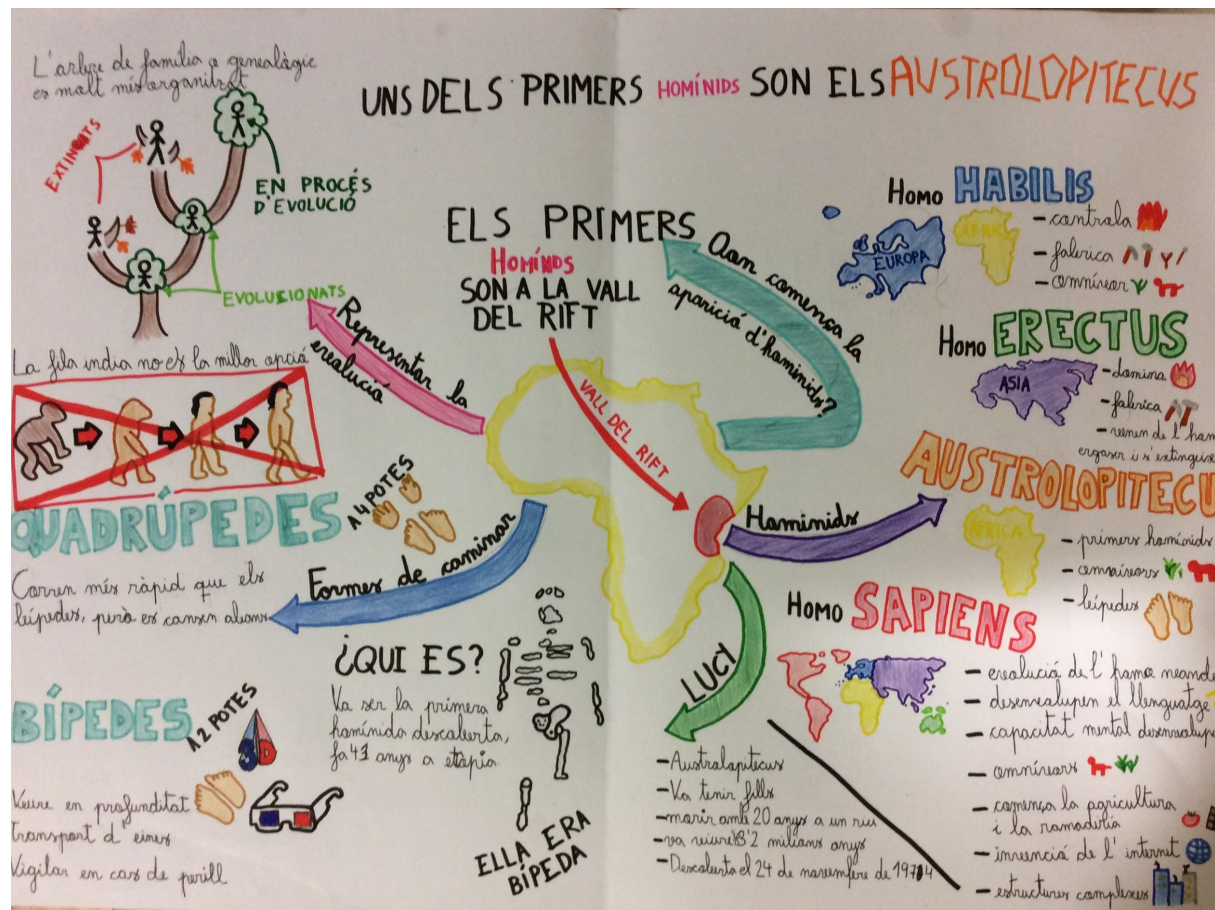 L'arbre de família o genealògic
es molt més organitzat
EXTINGITS
EN PROCÉS
D'EVOLUCIÓ
EVOLUCIONATS
UNS DELS PRIMERS HOMÍNIDS SON ELS AUSTROLOPITECUS
ELS PRIMERS
HOMÍNDS
SON A LA VALL
DEL RIFT
Representar la
evolució
La fila india no es la millor opció
QUADRÚPEDES
A 4 POTES
Corren més ràpid que els
bípedes, però es cansen abans
Formes de caminar
BÍPEDES
A 2 POTES
3D
Veure en profunditat
transport d'eines
Vigilar en cas de perill
¿QUI ES?
Va ser la primera
homínido descoberta,
fa 41 anys a etiòpia
ELLA ERA
BÍPEDA
VALL DEL RIFT
Oon comença la
aparició d'hominids?
Hominids
LUCY
-Australopitecus
-Va tenir fills
-morir amb 20 anys a un riu
-va viure 3'2 milions anys
-Descoberta el 24 de novembre de 1974
Homo HABILIS
EUROPA
ÀFRICA
- controla
- fabrica
- omnívor
Homo ERECTUS
ASIA
- domina
- fabrica
- venen de l'hom
ergaser i s'extingixe
AUSTROLOPITECU
ÀFRICA
- primers homínids
- omnívors
- bípedes
Homo SAPIENS
- evolució de l'homo neande
- desenvolupen el llenguatge
- capacitat mental desenvolup
- omnívors
- comença la agricultura
i la ramaderia
- invenció de l'internet
- estructures complexes